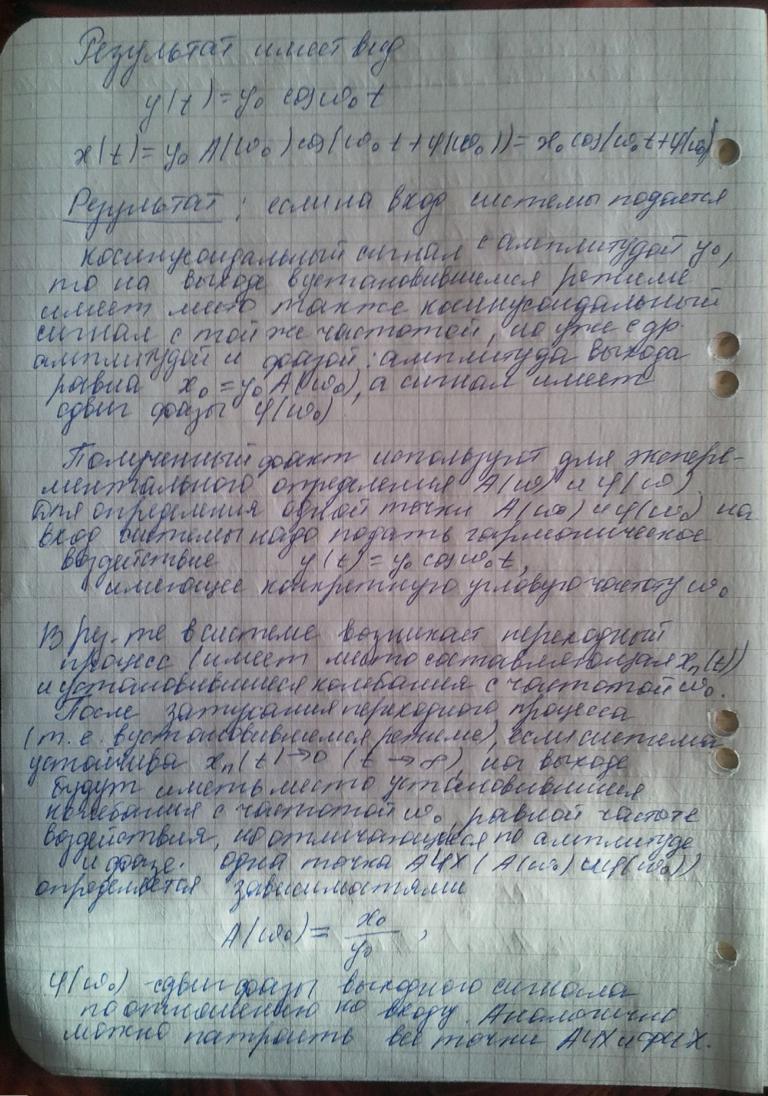 Результат имеет вид
y(t)=y₀ cosω₀t
x(t)=y₀ A(ω₀)cos(ω₀t+φ(ω₀))=x₀cos(ω₀t+φ(ω₀)
Результат: если на вход системы подается
косинусоидальный сигнал с амплитудой y₀,
то на выходе в установившемся режиме
имеет место также косинусоидальный
сигнал с той же частотой, но уже с др.
амплитудой и фазой: амплитуда выхода
равна x₀=y₀A(ω₀), а сигнал имеет
сдвиг фазы φ(ω₀)
Полученный факт используют для экспере-
ментального определения A(ω) и φ(ω)
Для определения одной точки A(ω₀) и φ(ω₀) на
вход системы надо подать гармоническое
воздействие y(t)=y₀cosω₀t,
имеющее конкретную угловую частоту ω₀
В рез-те в системе возникает переходный
процесс (имеет место составляющая xₙ(t))
и установившиеся колебания с частотой ω₀.
После затухания переходного процесса
(т.е. в установившемся режиме), если система
устойчива xₙ(t)→0 (t→∞), на выходе
будут иметь место установившиеся
колебания с частотой ω₀, равной частоте
воздействия, но отличающиеся по амплитуде
и фазе. одна точка АЧХ (A(ω₀) и φ(ω₀))
определяется зависимостями
A(ω₀)= x₀/y₀ ,
φ(ω₀) -сдвиг фазы выходного сигнала
по отношению ко входу. Аналогично
можно построить все точки АЧХ и ФЧХ.